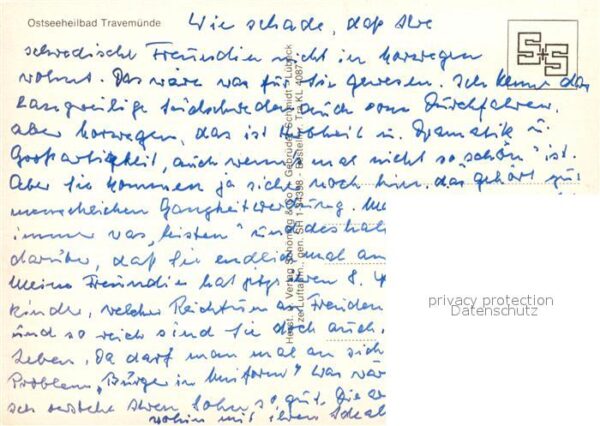 Ostseeheilbad Travemünde
Wie schade, daß Ihre
schwedische Freundin nicht in Norwegen
wohnt. Das wäre was für Sie gewesen. Ich kenne das
langweilige Südschweden auch vom Durchfahren.
aber Norwegen, das ist Herbheit u. Dramatik u.
Großartigkeit, auch wenn es mal nicht so "schön" ist.
Aber Sie kommen ja sicher noch hin, das gehört zur
menschlichen Ganzheitwerdung.
immer was "leisten" und deshalb
darüber, daß Sie endlich mal an
Meine Freundin hat jetzt ihren 8.
kinder, welcher Reichtum an Freuden
und so reich sind Sie doch auch.
Leben. Da darf man mal an sich
Problem "Bürger in Uniform"? Was war
Ich verstehe Ihren Sohn so gut. Die
wohin mit ihren Ideal
Herst. u. Verlag Schöning & Co + Gebrüder Schmidt · Lübeck
S+S
privacy protection
Datenschutz